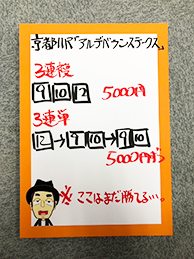 京都11R『アルデバランステークス』
3連複
9 10 12 5000円
3連単
12→9 10→9 10
5000円ずつ
※ここはまだ勝てる…。